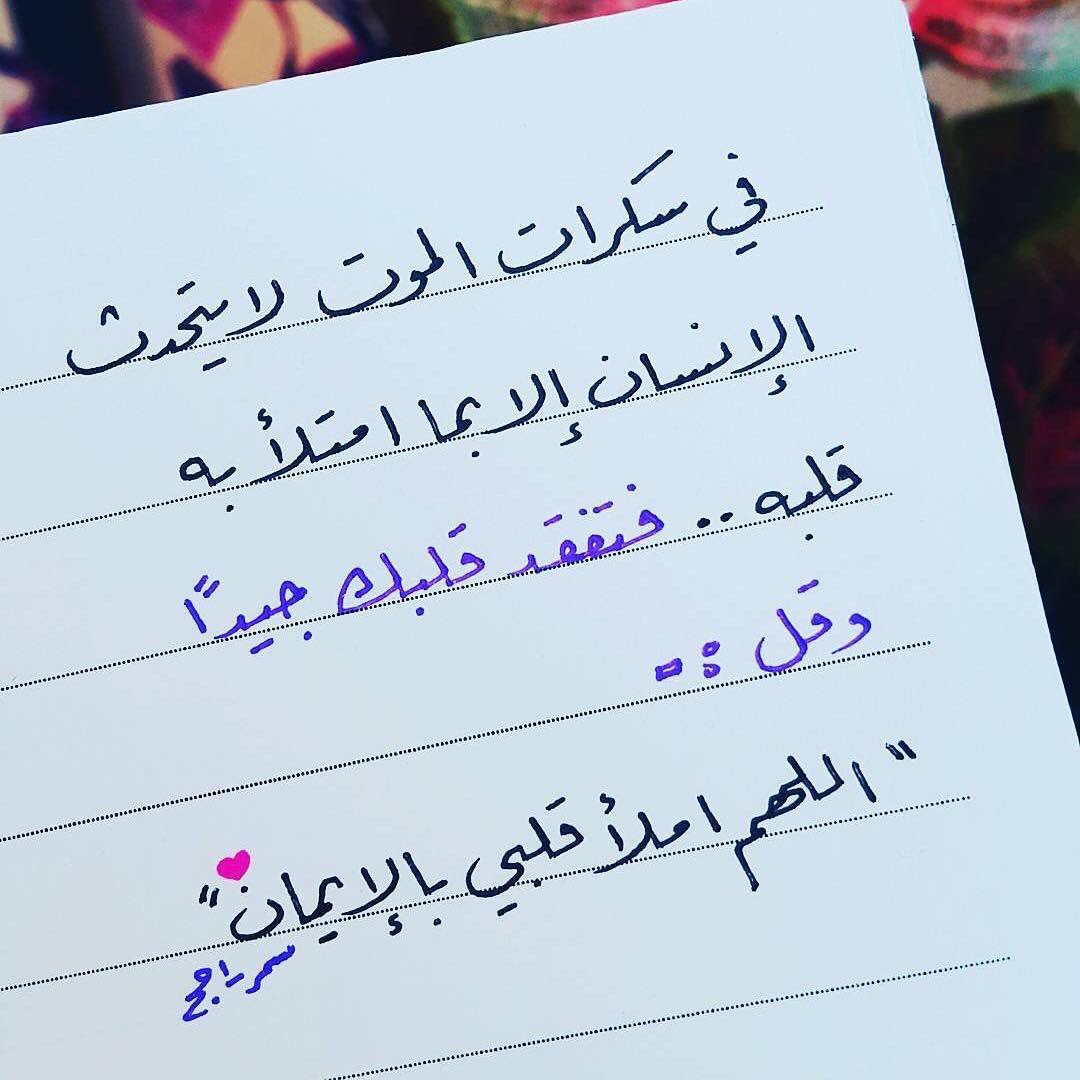 في سكرات الموت لا يتحدث
الإنسان إلا بما امتلأ به
قلبه .. فتفقد قلبك جيدًا
وقل :-
"اللهم املأ قلبي بالإيمان"